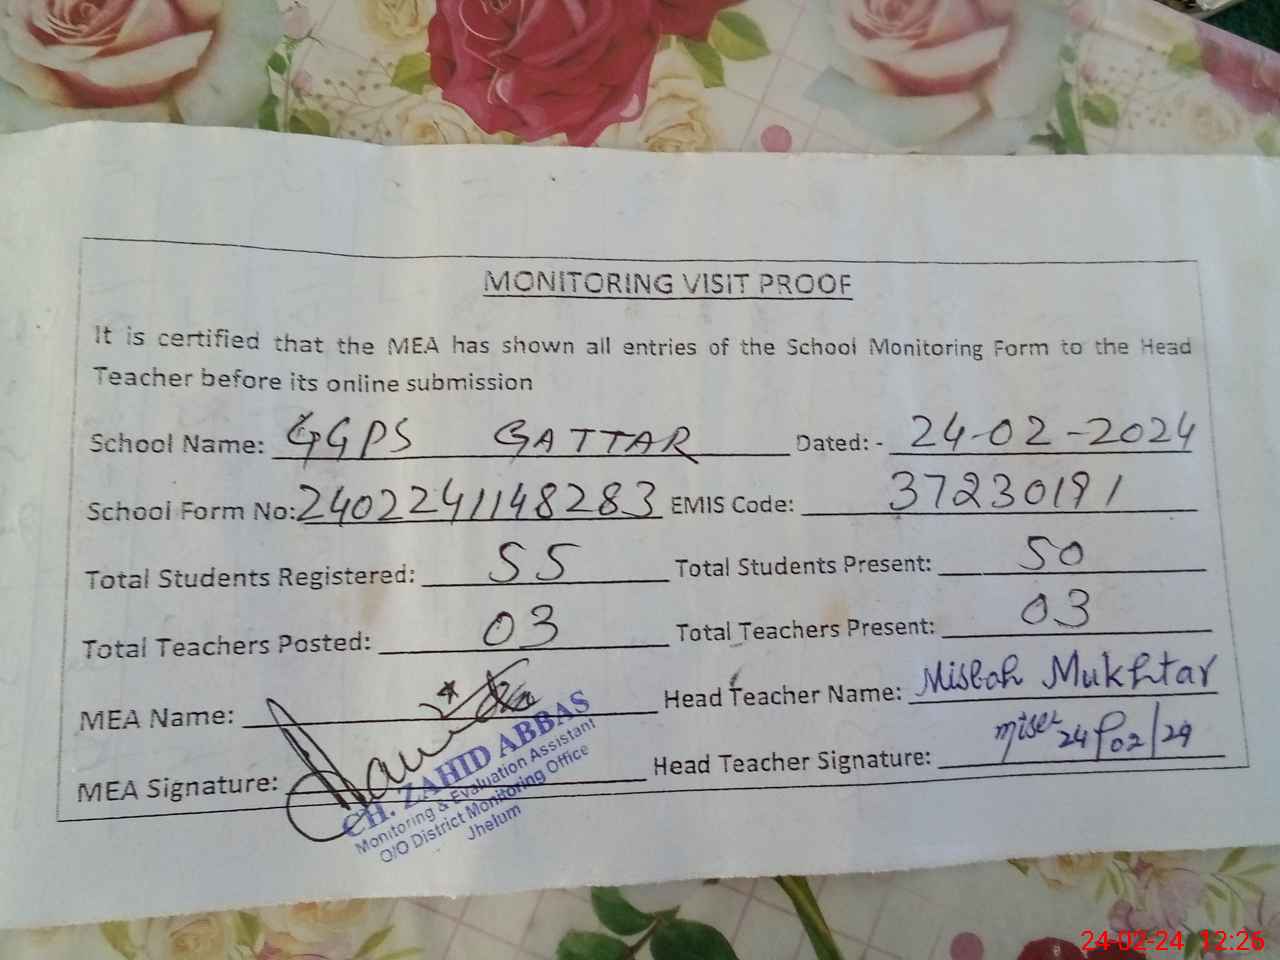 MONITORING VISIT PROOF
It is certified that the MEA has shown all entries of the School Monitoring Form to the Head
Teacher before its online submission
School Name: GGPS GATTAR Dated: - 24-02-2024
School Form No: 2402241148283 EMIS Code: 37230191
Total Students Registered: 55 Total Students Present: 50
Total Teachers Posted: 03 Total Teachers Present: 03
MEA Name: Head Teacher Name: Misbah Mukhtar
MEA Signature: Head Teacher Signature: 24/02/24
CH. ZAHID ABBAS
Monitoring & Evaluation Assistant
O/O District Monitoring Office
Jhelum
24-02-24 12:26